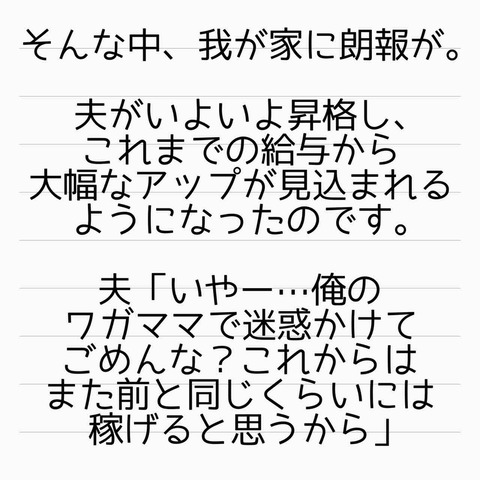 そんな中、我が家に朗報が。
夫がいよいよ昇格し、
これまでの給与から
大幅なアップが見込まれる
ようになったのです。
夫「いやー…俺の
ワガママで迷惑かけて
ごめんな？これからは
また前と同じくらいには
稼げると思うから」